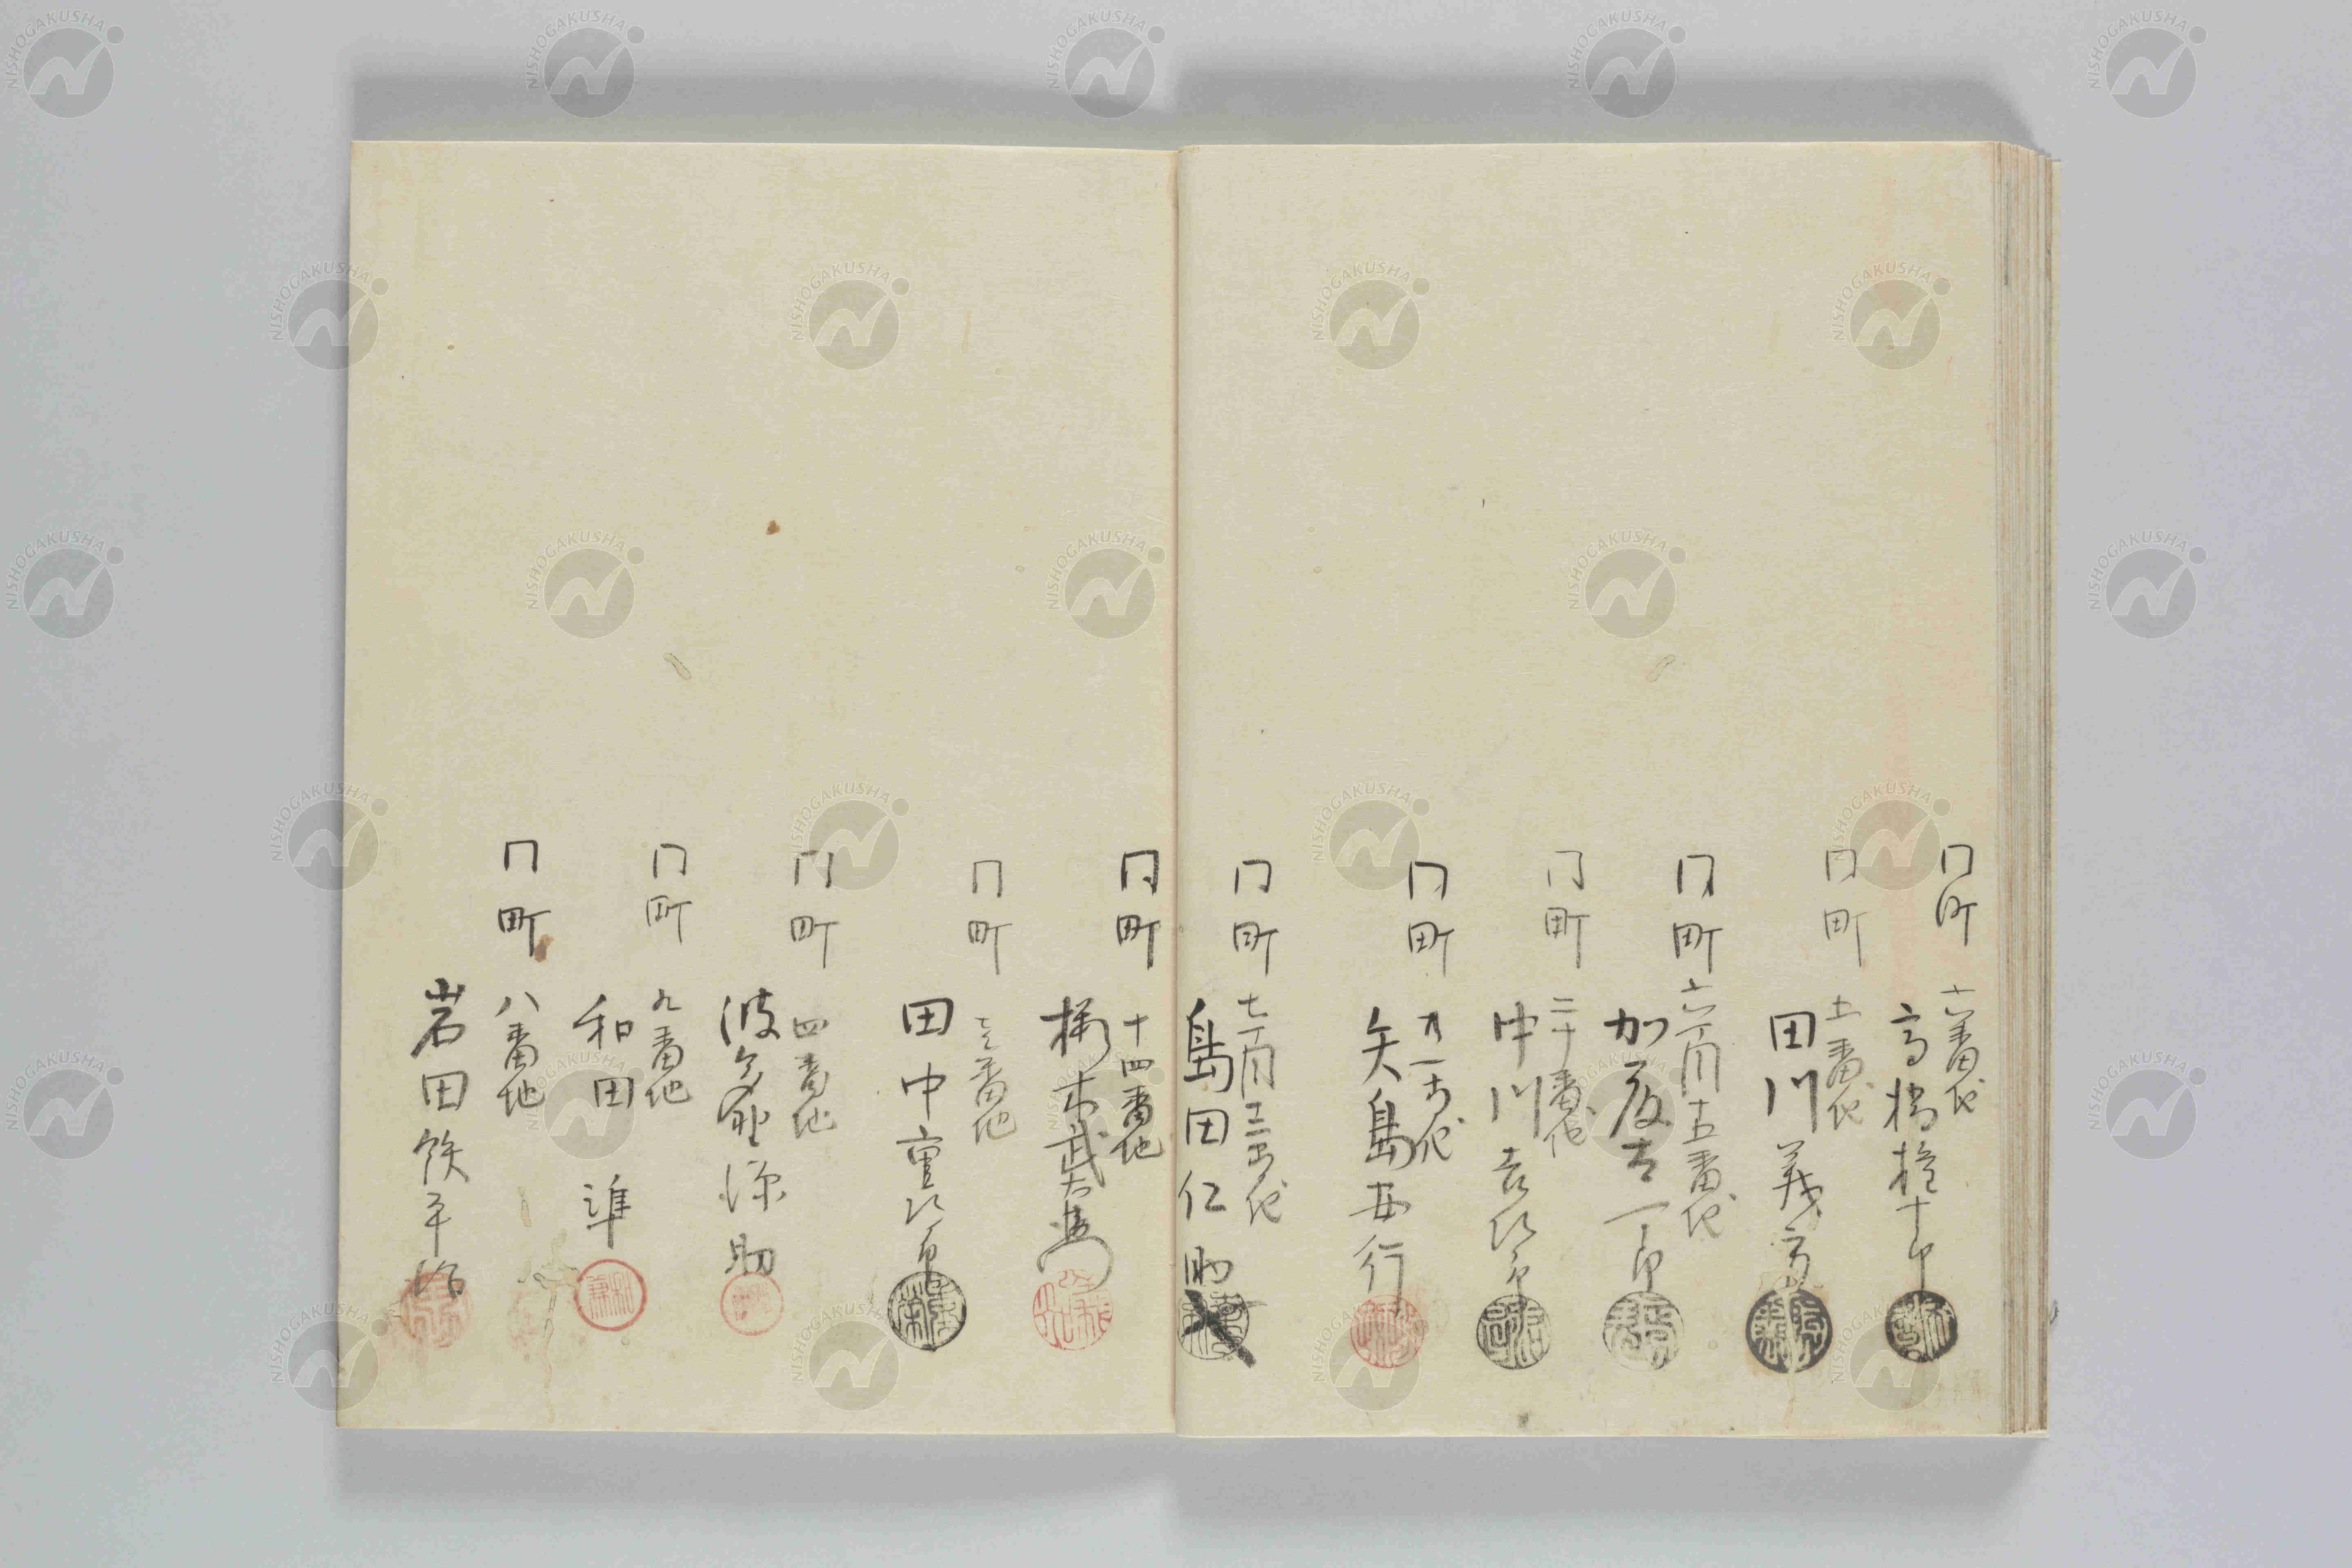 同町 十六番地
高橋権十郎
同町 十一番地
田川義方
同町 六丁目十五番地
加度吉一郎
同町 二十番地
中川吉次郎
同町
矢島安行
同町 七丁目十二番地
島田仁助
同町 十四番地
木武右馬
同町 十三番地
田中重次郎
同町 四番地
波多野源助
同町 九番地
和田 準
同町 八番地
岩田鉄平治
NISHOGAKUSHA